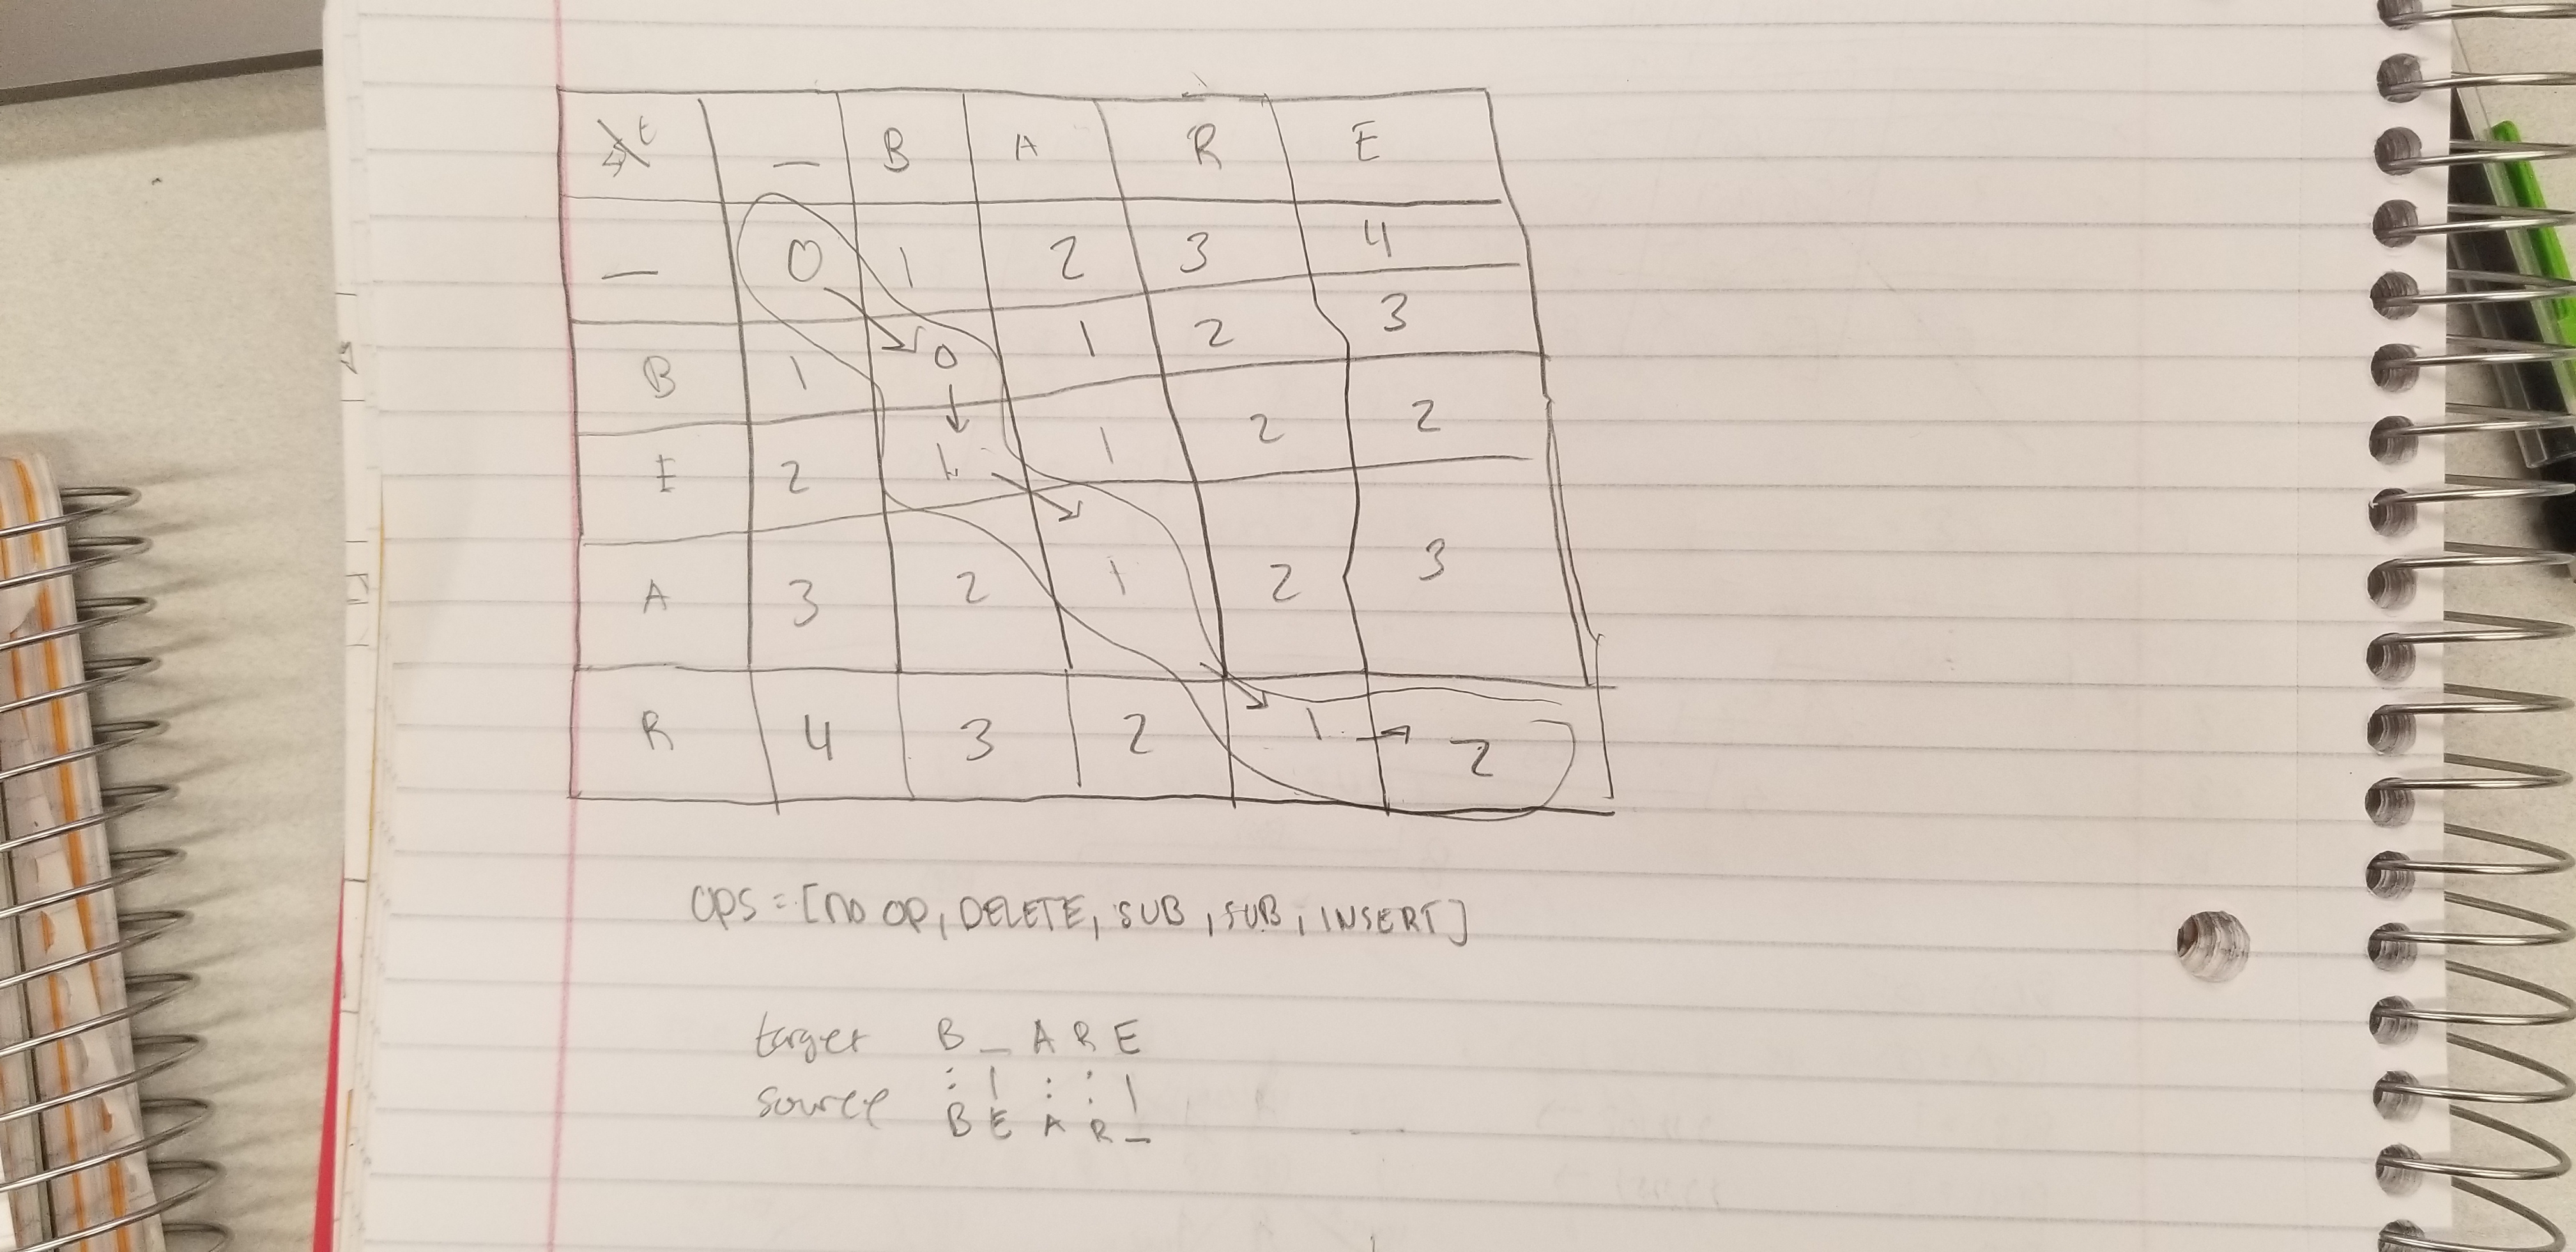 s\t _ B A R E
_ 0 1 2 3 4
B 1 0 1 2 3
E 2 1 1 2 2
A 3 2 1 2 3
R 4 3 2 1 2
OPS = [NO OP, DELETE, SUB, SUB, INSERT]
target B _ A R E
: | : : |
source B E A R _